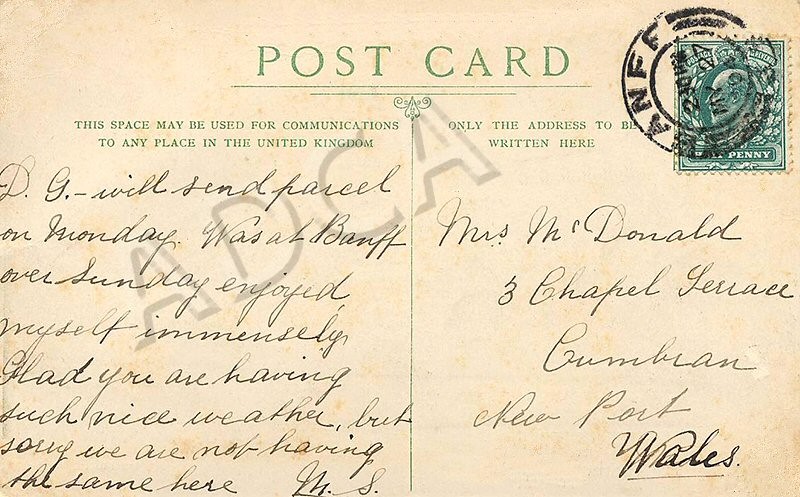 POST CARD
THIS SPACE MAY BE USED FOR COMMUNICATIONS
TO ANY PLACE IN THE UNITED KINGDOM
ONLY THE ADDRESS TO BE
WRITTEN HERE
ANFF
PENNY
D. G. - will send parcel
on Monday. Was at Banff
over Sunday enjoyed
myself immensely,
Glad you are having
such nice weather, but
sorry we are not having
the same here M. S.
Mrs McDonald
3 Chapel Terrace
Cumbran
New Port
Wales.
ADCA